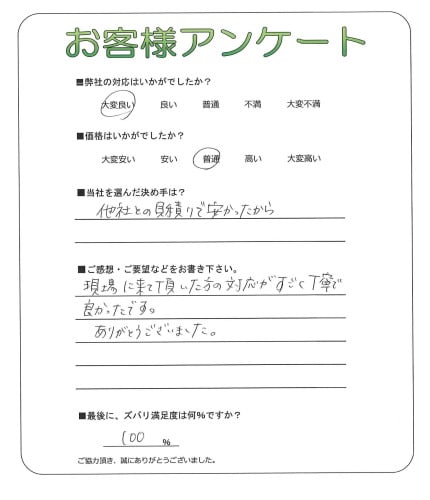 お客様アンケート
■弊社の対応はいかがでしたか?
大変良い 良い 普通 不満 大変不満
■価格はいかがでしたか?
大変安い 安い 普通 高い 大変高い
■当社を選んだ決め手は?
他社との見積りで安かったから
■ご感想・ご要望などをお書き下さい。
現場に来て頂いた方の対応がすごく丁寧で
良かったです。
ありがとうございました。
■最後に、ズバリ満足度は何%ですか?
100 %
ご協力頂き、誠にありがとうございました。